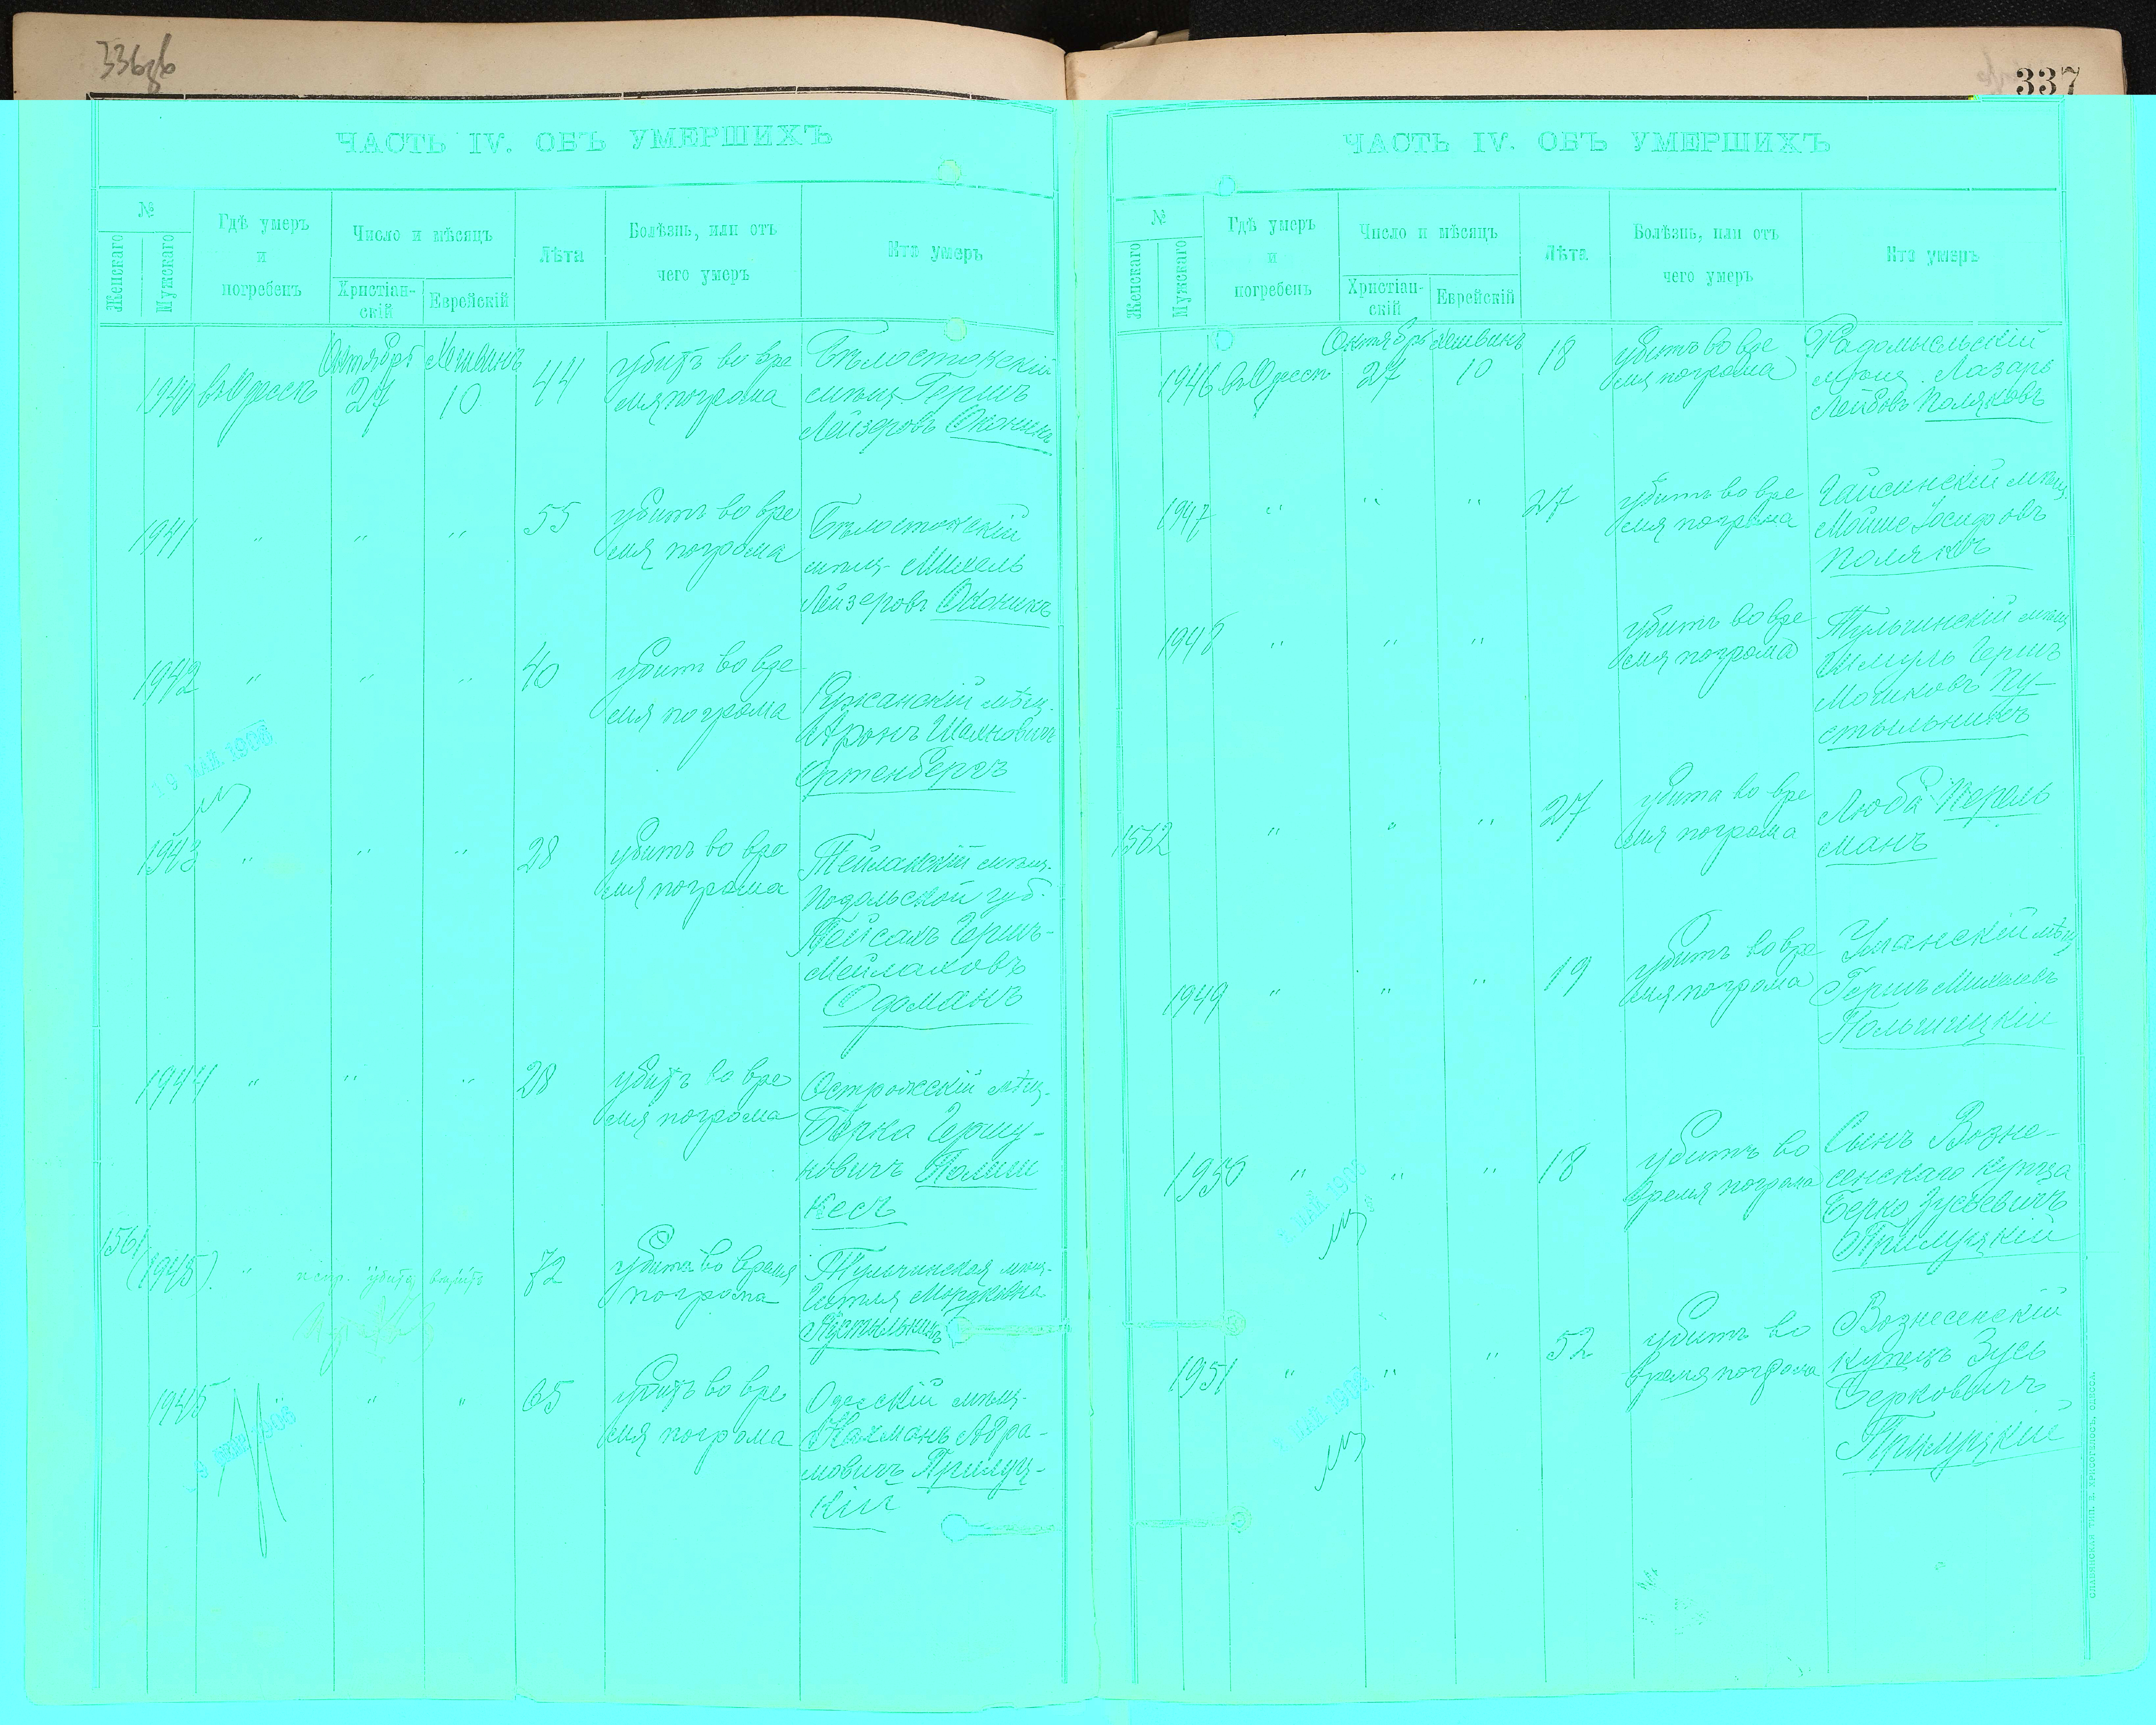 336об
337
ЧАСТЬ IV. ОБЪ УМЕРШИХЪ
№
Женскаго
Мужскаго
Гдѣ умеръ
и
погребенъ
Число и мѣсяцъ
Христіан-
скій
Еврейскій
Лѣта
Болѣзнь, или отъ
чего умеръ
Кто умеръ
1940 въ Одессѣ
Октября
27
Хешванъ
10
44
убитъ во вре
мя погрома
Бѣлостокскій
мѣщ. Гершъ
Лейзеровъ
1941 " " "
55
убитъ во вре
мя погрома
Бѣлостокскій
мѣщ. Михель
Лейзеровъ
1942 " " "
40
убитъ во вре
мя погрома
Ружанскій мѣщ.
Аронъ
Ортенбергъ
19 МАЙ 1906
1943 " " "
28
убитъ во вре
мя погрома
мѣщ.
Подольской губ.
Пейсахъ Гершъ-
Мейлаховъ
1944 " " "
28
убитъ во вре
мя погрома
Острожскій мѣщ.
Гершу-
ковичъ
1561
(1945) "
72
убита во время
погрома
Тульчинская мѣщ.
Мордковна
Пустыльникъ
1945 " " "
65
убитъ во вре
мя погрома
Одесскій мѣщ.
Нахманъ Абра-
мовичъ Прилуц-
кій
МАЙ 1906
ЧАСТЬ IV. ОБЪ УМЕРШИХЪ
№
Женскаго
Мужскаго
Гдѣ умеръ
и
погребенъ
Число и мѣсяцъ
Христіан-
скій
Еврейскій
Лѣта
Болѣзнь, или отъ
чего умеръ
Кто умеръ
1946 въ Одессѣ
Октябрь
27
Хешванъ
10
18
убитъ во вре
мя погрома
Радомысльскій
мѣщ. Лазарь
Лейбовъ Поляковъ
1947 " " "
27
убитъ во вре
мя погрома
Гайсинскій мѣщ.
Мойше Іосифовъ
Поляковъ
1948 " " "
убитъ во вре
мя погрома
Тульчинскій мѣщ
Шмуль Гершъ
Мошковъ Пу-
стыльникъ
1562 " " "
27
убита во вре
мя погрома
Люба Перель
манъ
1949 " " "
19
убитъ во вре
мя погрома
Уманскій мѣщ
Гершъ
1950 " " "
18
убитъ во
время погрома
Сынъ Возне-
сенскаго купца
Берко Зусьевичъ
Прилуцкій
МАЙ 1906
1951 " " "
52
убитъ во
время погрома
Вознесенскій
купецъ Зусь
Берковичъ
Прилуцкій
МАЙ 1906
СЛАВЯНСКАЯ ТИП. Н. ХРИСОГЕЛОСЪ, ОДЕССА.